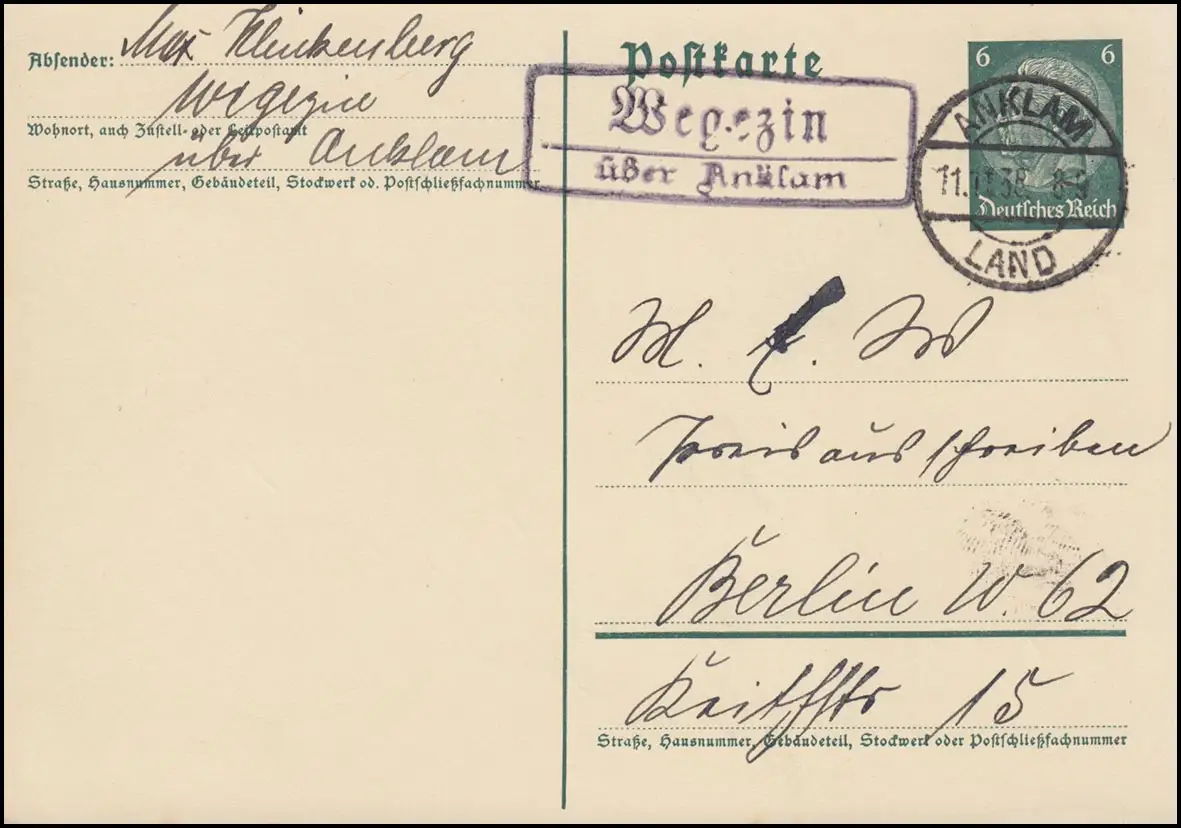 Absender: Max Klinkenberg
Wegezin
Wohnort, auch Zustell- oder Leitpostamt
über Anklam
Straße, Hausnummer, Gebäudeteil, Stockwerk od. Postschließfachnummer
Postkarte
Wegezin
über Anklam
6 6
Deutsches Reich
ANKLAM
11.11.38 8-9
LAND
M. W
Preisausschreiben
Berlin W. 62
Keithstr 15
Straße, Hausnummer, Gebäudeteil, Stockwerk oder Postschließfachnummer